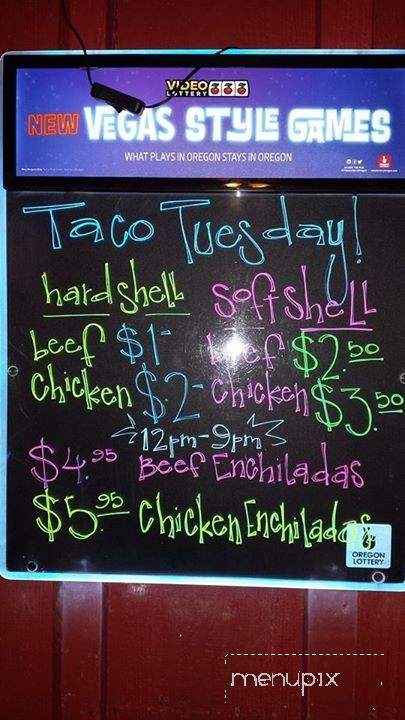 VIDEO LOTTERY
NEW VEGAS STYLE GAMES
WHAT PLAYS IN OREGON STAYS IN OREGON
Taco Tuesday!
hard shell soft shell
beef $1- beef $2.50
chicken $2- chicken $3.50
12pm-9pm
$4.95 Beef Enchiladas
$5.95 chicken Enchiladas
OREGON
LOTTERY
menupix